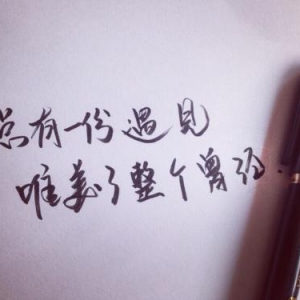 总有一份遇见
唯美了整个曾经